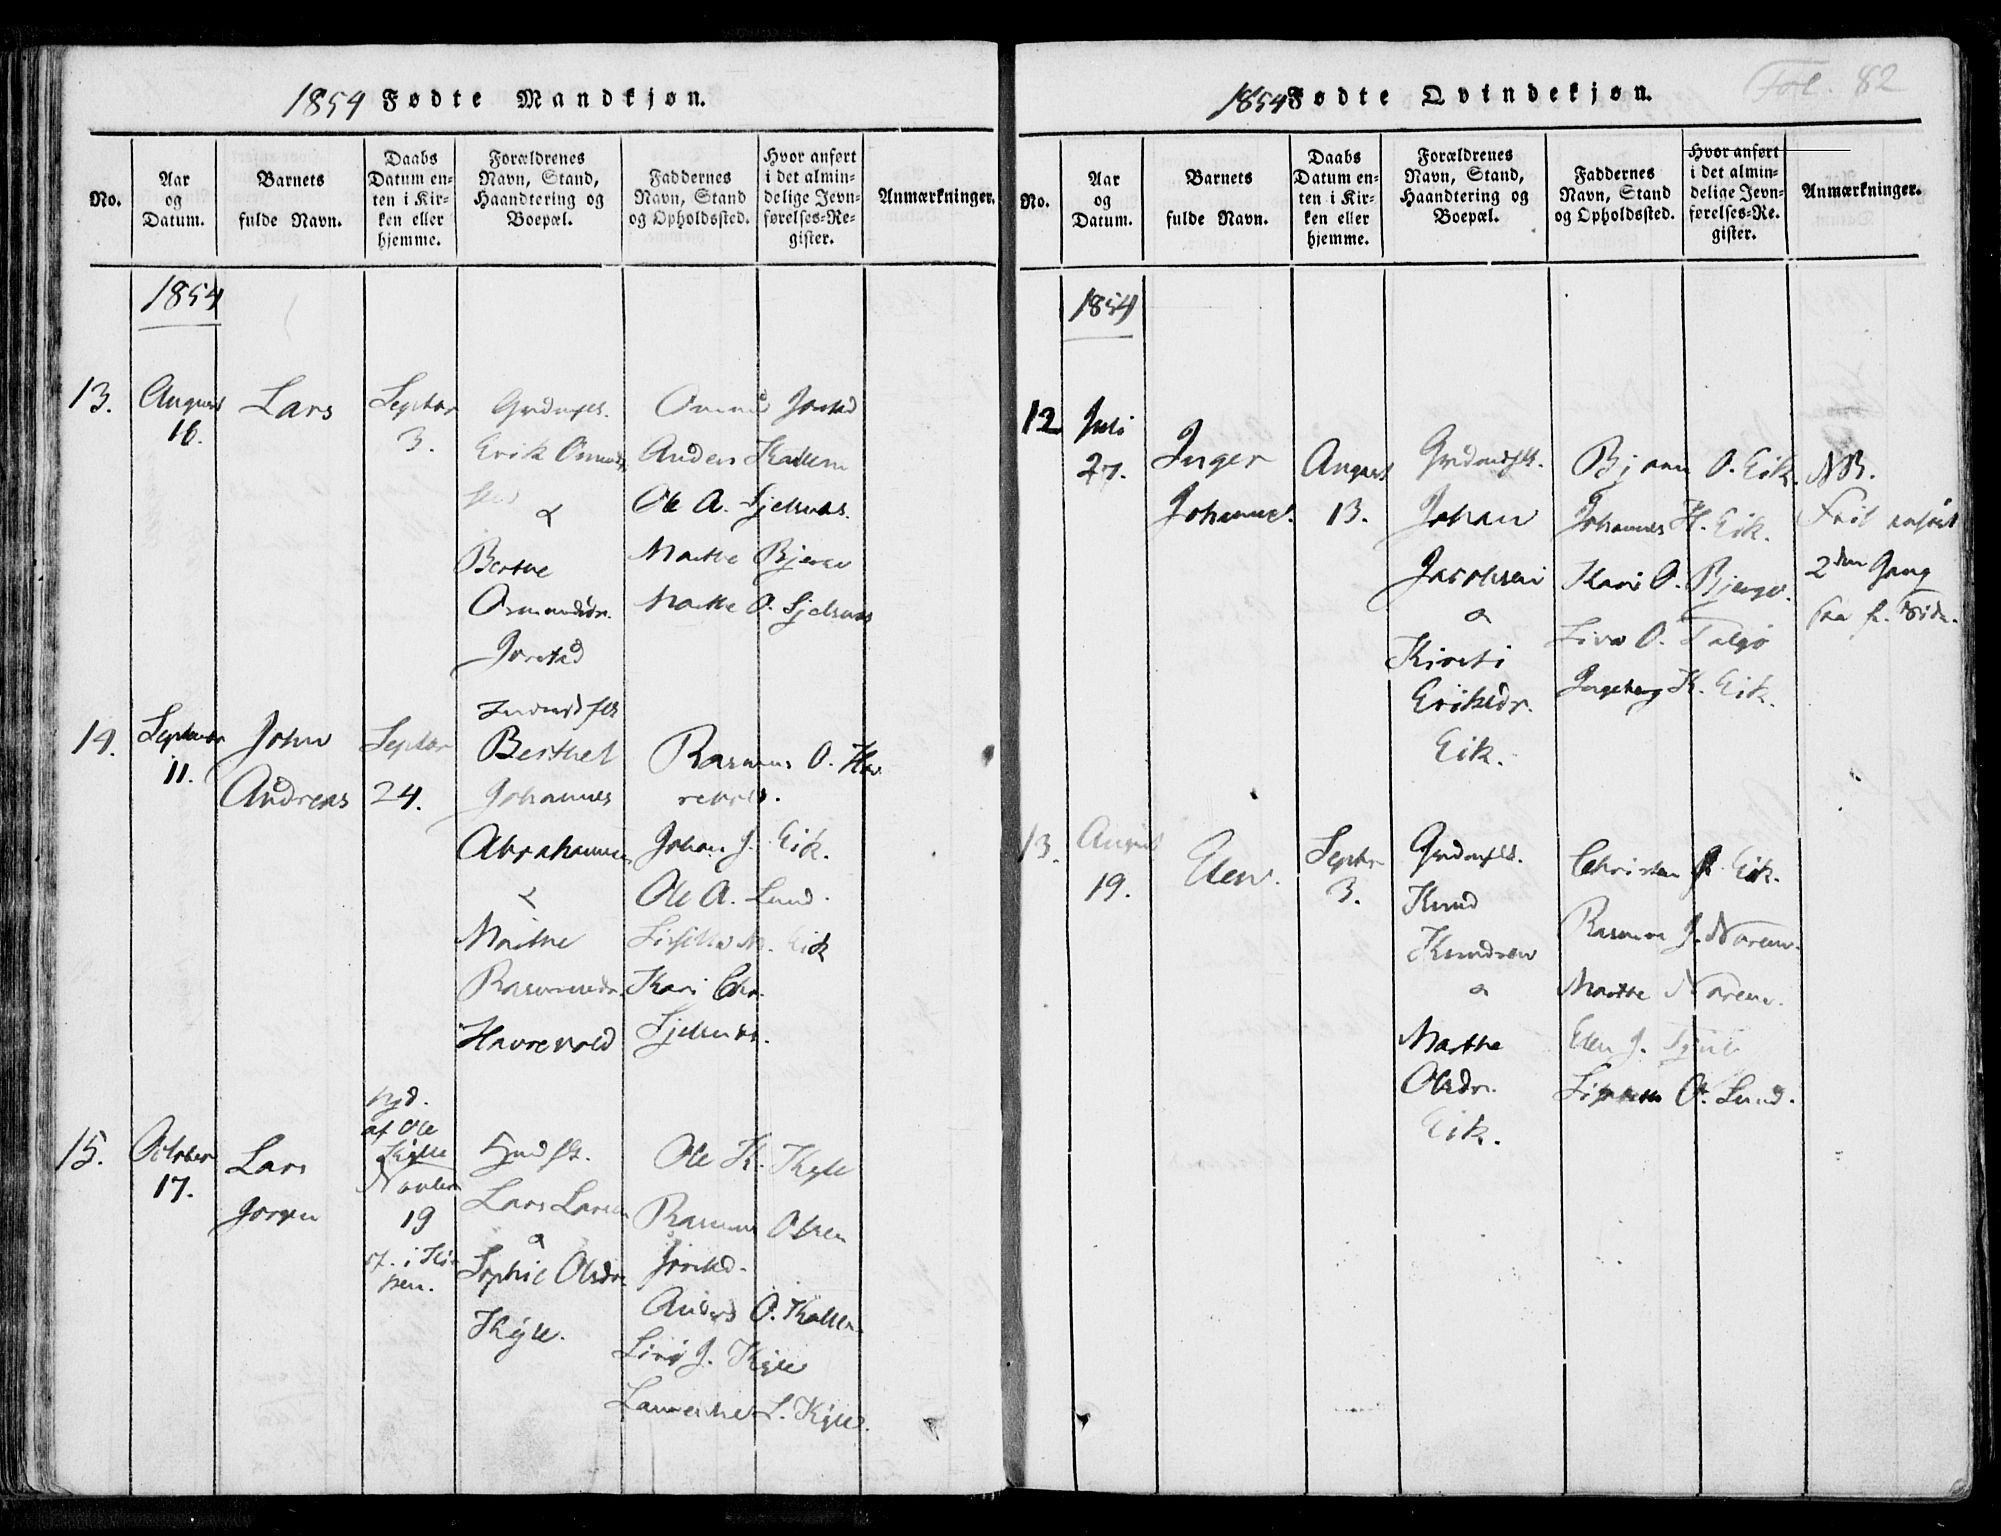 1854 Fødte Mandkjøn.
No.
Aar
og
Datum.
Barnets
fulde Navn.
Daabs
Datum en-
ten i Kir-
ken eller
hjemme.
Forældrenes
Navn, Stand,
Haandtering og
Boepæl.
Faddernes
Navn, Stand
og Opholdssted.
Hvor anført
i det almin-
delige Jevn-
førelses-Re-
gister.
Anmærkninger.
1854
13.
August
16.
Lars
Septbr
3.
Grdmfk.
Erik
&
Berthe
Osmundsdr.
Jorstad
Jorstad
Anders Kallem
Ole A. Fjelsnæs.
Marthe
Marthe O. Fjelsnæs
14.
September
11.
John
Andreas
Septbr
24.
Berthel
Johannes
Abrahamsen
&
Marthe
Rasmusdr.
Havrevold
Rasmus O. Hav-
revold.
Johan J. Eik.
Ole A. Lund.
M. Eik
Kari Chr.
Fjelsnæs.
15.
October
17.
Lars
Jørgen
hjd.
af Ole
Kylle
Novbr
19
st. i Kir-
ken.
Lars Larsen
&
Sophie Olsdr.
Kylle.
Ole K. Kylle
Rasmus Olsen
Jorstad.
Anders O. Kallem
J. Kylle
L. Kylle.
1854 Fødte Qvindekjøn.
Fol. 82
No.
Aar
og
Datum.
Barnets
fulde Navn.
Daabs
Datum en-
ten i Kir-
ken eller
hjemme.
Forældrenes
Navn, Stand,
Haandtering og
Boepæl.
Faddernes
Navn, Stand
og Opholdssted.
Hvor anført
i det almin-
delige Jevn-
førelses-Re-
gister.
Anmærkninger.
1854
12
Juli
27.
Inger
Johanne.
August
13.
Grdmfk.
Johan
Jacobsen
&
Kirsti
Eriksdr.
Eik.
Bjørn O. Eik.
Johannes H. Eik.
Kari O.
O. Talgø
Ingeborg K. Eik.
NB.
Feil anført
2den Gang
paa f. Side.
13.
August
19.
Elen.
Septbr
3.
Grdmfk.
Knud
Knudsen
&
Marthe
Olsdr.
Eik.
Christen J. Eik.
Rasmus J. Norem.
Marthe Norem.
Elen J.
O. Lund.